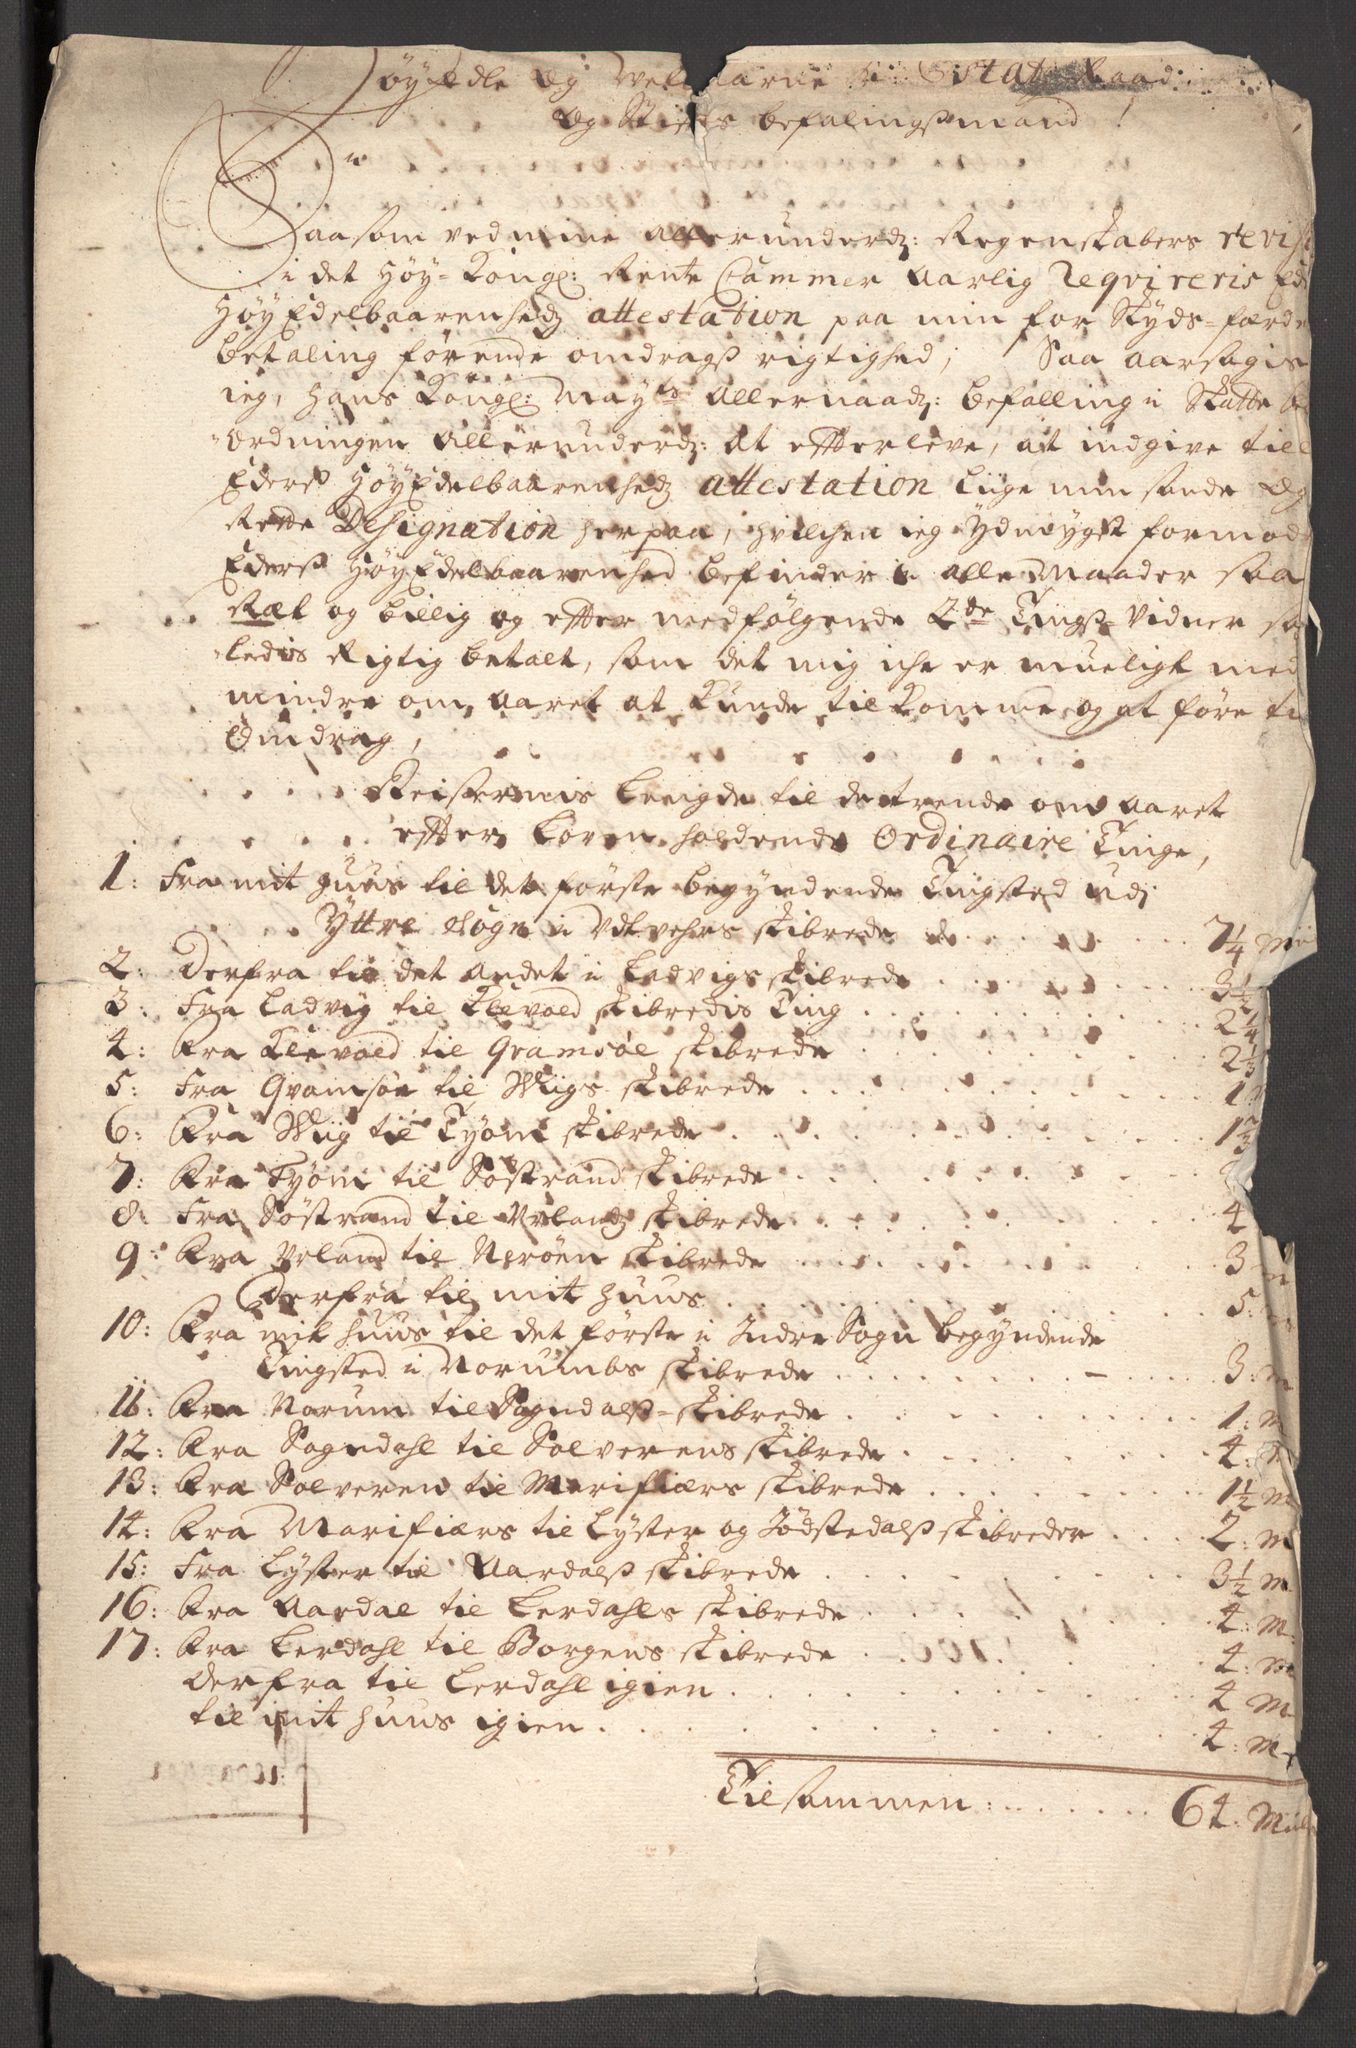 Høyædle og Velbaarne Hr: Estatz Raad
og Stifts befalingsmand!
Saasom ved mine allerunderd: Regenskabers revis
i det Høy-Kongl: Rente Cammer aarlig reqvireris Ed
HøyEdelbaarenhedz attestation paa min for Skyds-færd
betaling førende omdragß rigtighed, Saa aarsagis
ieg, Hans Kongl: Mayts allernaadz: befalling i Skatte
ordningen allerunderd: at effterleve, at indgive till
Ederß HøyEdelbaarenhedz attestation min sande og
Rette Designation herpaa, hvilchen ieg ydmygst formod
Ederß HøyEdelbaarenhed befinder i alle Maader saa
Ræt og billig og effter medfølgende 2de Tingß-Vidner saa
ledis Rigtig betalt, som det mig iche er mueligt med
mindre om aaret at kunde tilkomme og at føre til
Omdrag,
Reisernis Lengde til de trende om aaret
effter Loven holdende Ordinaire Tinge,
1: Fra mit huus til det første begyndende Tingsted udj
Yttre Sogn i Udvehrs skibrede 7¼ Mi
2: Derfra til det andet i Ladvigs skibrede 3½
3: Fra Ladvig til Klevold skibredis Ting 2¼
4: Fra Klevold til Qvamsøe skibrede 2½
5: Fra Qvamsøe til Wiigs skibrede 1
6: Fra Wiig til Tyom skibrede 1½
7: Fra Tyom til Søstrand skibrede
8: Fra Søstrand til Urlandz skibrede 4
9: Fra Urland til Nerøen skibrede 3 m
Derfra til mit huus 5: m
10: Fra mit huus til det første i Indre Sogn begyndende
Tingsted i Norumbs skibrede 3: m
11: Fra Norum til Sogndalß-skibrede 1: m
12: Fra Sogndahl til Solverens skibrede 4: M
13: Fra Solveren til Marifiærs skibrede 1½ M
14: Fra Marifiærs til Lyster og Jødstedalß skibreder 2: M
15: Fra Lyster til Aardalß skibrede 3½ M
16: Fra Aardal til Lerdahls skibrede 4: M:
17: Fra Lerdahl til Borgens skibrede 4: M
Derfra til Lerdahl igien 4 M
til mit huus igien 4: M
Tilsammen: 64: Miil